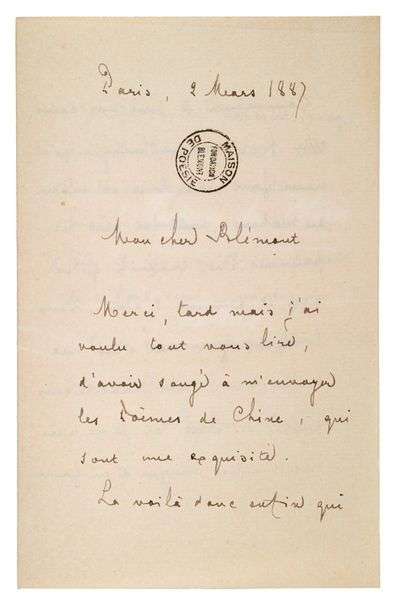 Paris, 2 Mars 1887
MAISON DE POÉSIE
FONDATION
BLÉMONT
Mon cher Blémont
Merci, tard mais j'ai
voulu tout vous lire,
d'avoir songé à m'envoyer
les Poèmes de Chine, qui
sont une exquisité.
La voilà donc enfin qui